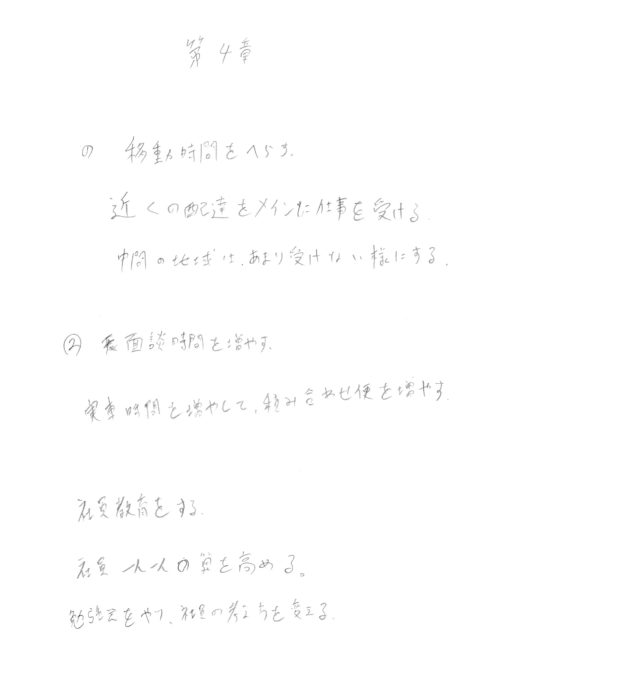 第4章
① 移動時間をへらす.
近くの配達をメインに仕事を受ける.
中間の地域は、あまり受けない様にする.
② 面談時間を増やす.
実車時間を増やして、積み合わせ便を増やす.
社員教育をする.
社員一人一人の質を高める。
勉強会をやり、社員の考え方を変える.